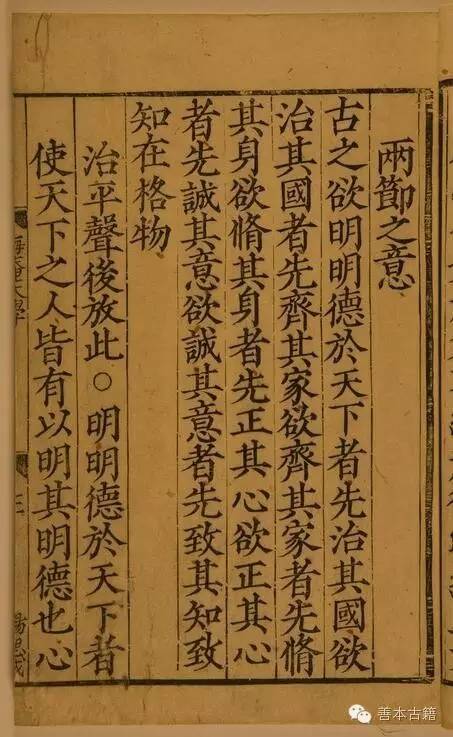 兩節之意
古之欲明明德於天下者先治其國欲
治其國者先齊其家欲齊其家者先脩
其身欲脩其身者先正其心欲正其心
者先誠其意欲誠其意者先致其知致
知在格物
治平聲後放此○明明德於天下者
使天下之人皆有以明其明德也心
善本古籍